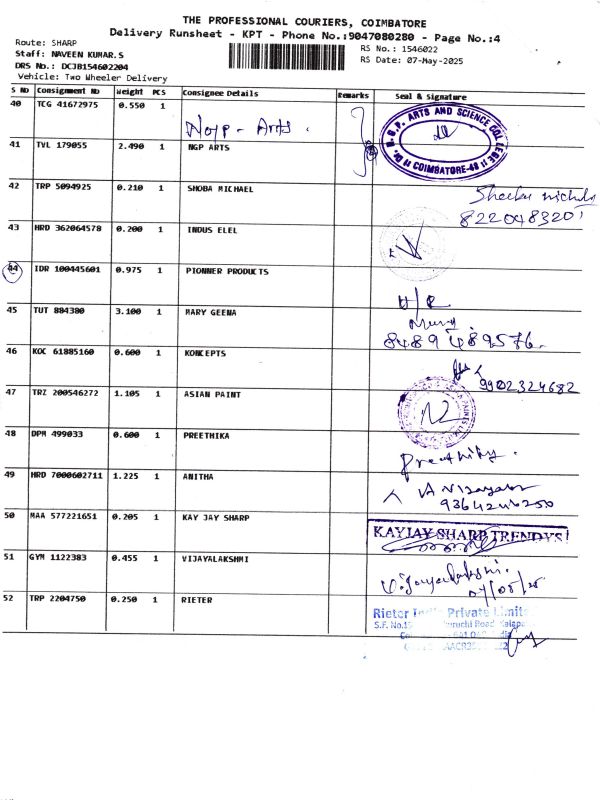 THE PROFESSIONAL COURIERS, COIMBATORE
Delivery Runsheet - KPT - Phone No.:9047080280 - Page No.:4
Route: SHARP
Staff: NAVEEN KUMAR.S
DRS No.: DCJB154602204
Vehicle: Two Wheeler Delivery
RS No.: 1546022
RS Date: 07-May-2025
S No Consignment No Weight PCS Consignee Details Remarks Seal & Signature
40 TCG 41672975 0.550 1
ARTS AND SCIENCE COLLEGE
COIMBATORE-48
41 TVL 179055 2.490 1 NGP ARTS
42 TRP 5094925 0.210 1 SHOBA MICHAEL
8220483201
43 HRD 362064578 0.200 1 INDUS ELEL
44 IDR 100445601 0.975 1 PIONNER PRODUCTS
45 TUT 884380 3.100 1 MARY GEENA
8489489576.
46 KOC 61885160 0.600 1 KONCEPTS
9902324682
47 TRZ 200546272 1.105 1 ASIAN PAINT
48 DPM 499033 0.600 1 PREETHIKA
Preethika.
49 HRD 7000602711 1.225 1 ANITHA
9364246250
50 MAA 577221651 0.205 1 KAY JAY SHARP
KAYJAY SHARP TRENDYS
51 GYM 1122383 0.455 1 VIJAYALAKSHMI
Vijayalakshmi.
07/05/25
52 TRP 2204750 0.250 1 RIETER
Rieter India Private Limited